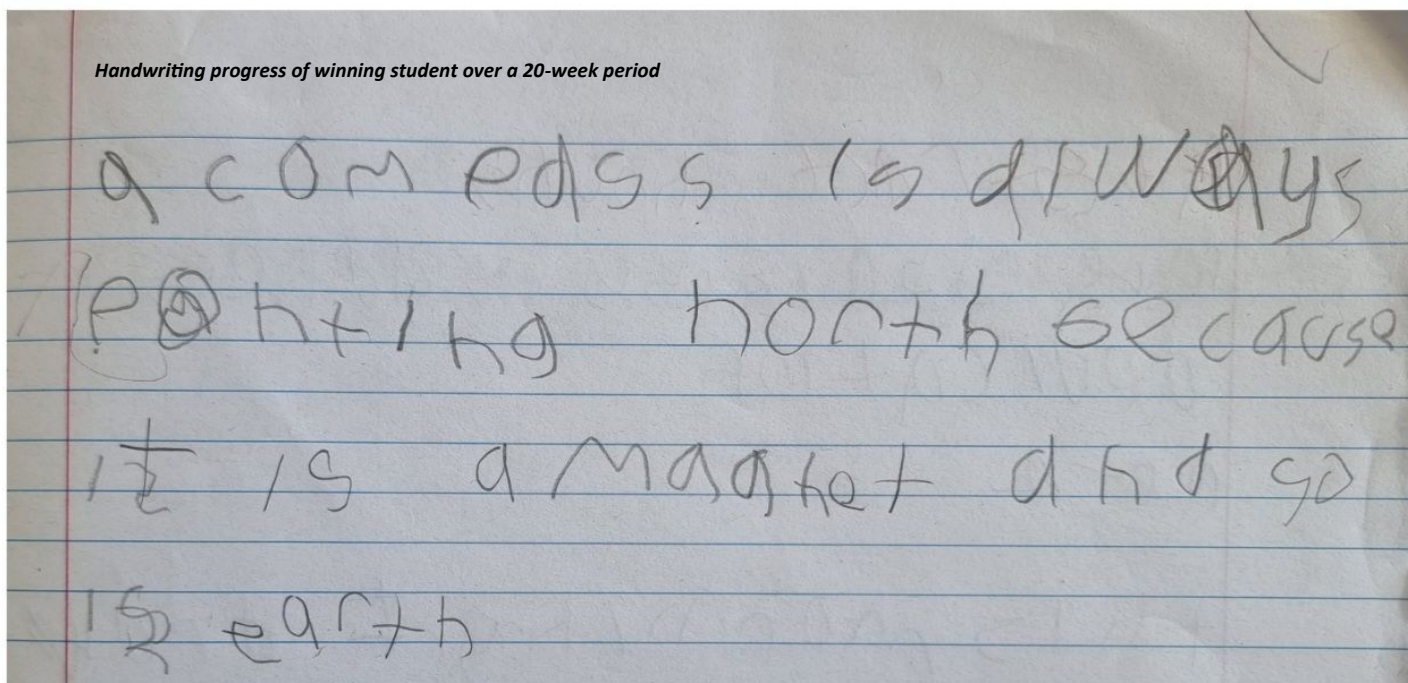 Handwriting progress of winning student over a 20-week period
a compass is always
ponting north because
it is a magnet and so
is earth